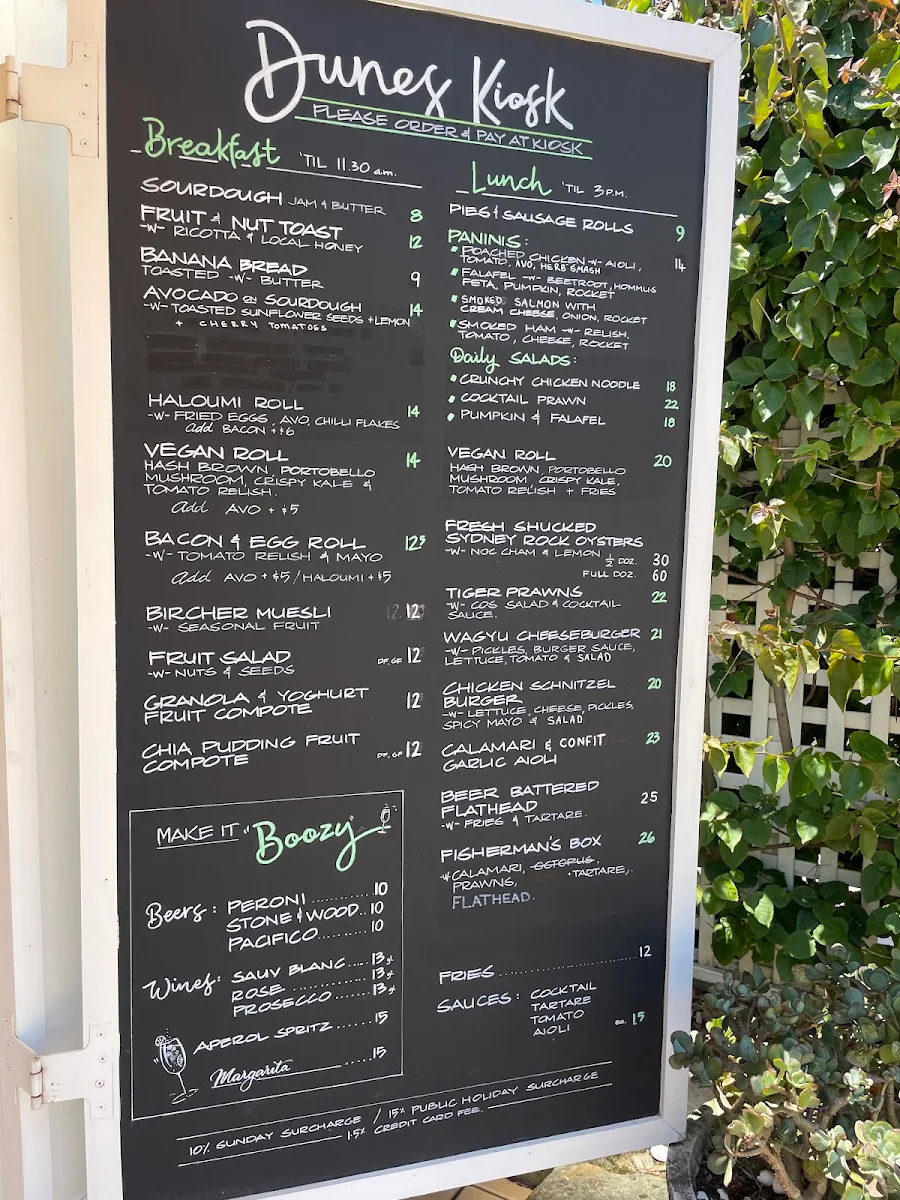 Dunes Kiosk
PLEASE ORDER & PAY AT KIOSK
Breakfast 'TIL 11.30 a.m.
SOURDOUGH JAM & BUTTER 8
FRUIT & NUT TOAST
-W- RICOTTA & LOCAL HONEY 12
BANANA BREAD
TOASTED -W- BUTTER 9
AVOCADO ON SOURDOUGH
-W- TOASTED SUNFLOWER SEEDS + LEMON 14
+ CHERRY TOMATOES
HALOUMI ROLL
-W- FRIED EGGS, AVO, CHILLI FLAKES 14
add BACON + $6
VEGAN ROLL 14
HASH BROWN, PORTOBELLO
MUSHROOM, CRISPY KALE &
TOMATO RELISH.
add AVO + $5
BACON & EGG ROLL 12.5
-W- TOMATO RELISH & MAYO
add AVO + $5 / HALOUMI + $5
BIRCHER MUESLI 12
-W- SEASONAL FRUIT
FRUIT SALAD DF, GF 12
-W- NUTS & SEEDS
GRANOLA & YOGHURT
FRUIT COMPOTE 12
CHIA PUDDING FRUIT
COMPOTE DF, GF 12
MAKE IT "Boozy"
Beers: PERONI ........... 10
STONE & WOOD.. 10
PACIFICO.......... 10
Wines: SAUV BLANC.... 13
ROSE ............... 13
PROSECCO....... 13
APEROL SPRITZ ...... 15
Margarita ..... 15
Lunch 'TIL 3 P.M.
PIES & SAUSAGE ROLLS 9
PANINIS:
POACHED CHICKEN -W- AIOLI, 14
TOMATO, AVO, HERB SMASH
FALAFEL -W- BEETROOT, HOMMUS
FETA, PUMPKIN, ROCKET
SMOKED SALMON WITH
CREAM CHEESE, ONION, ROCKET
SMOKED HAM -W- RELISH,
TOMATO, CHEESE, ROCKET
Daily SALADS:
CRUNCHY CHICKEN NOODLE 18
COCKTAIL PRAWN 22
PUMPKIN & FALAFEL 18
VEGAN ROLL 20
HASH BROWN, PORTOBELLO
MUSHROOM, CRISPY KALE,
TOMATO RELISH + FRIES
FRESH SHUCKED
SYDNEY ROCK OYSTERS
-W- NOC CHAM & LEMON ½ DOZ. 30
FULL DOZ. 60
TIGER PRAWNS 22
-W- COS SALAD & COCKTAIL
SAUCE.
WAGYU CHEESEBURGER 21
-W- PICKLES, BURGER SAUCE,
LETTUCE, TOMATO & SALAD
CHICKEN SCHNITZEL 20
BURGER
-W- LETTUCE, CHEESE, PICKLES,
SPICY MAYO & SALAD
CALAMARI & CONFIT 23
GARLIC AIOLI
BEER BATTERED
FLATHEAD 25
-W- FRIES & TARTARE.
FISHERMAN'S BOX 26
-W- CALAMARI, OCTOPUS,
PRAWNS, TARTARE,
FLATHEAD.
FRIES .......................... 12
SAUCES: COCKTAIL
TARTARE
TOMATO
AIOLI ea. 1.5
10% SUNDAY SURCHARGE / 15% PUBLIC HOLIDAY SURCHARGE
1.5% CREDIT CARD FEE.